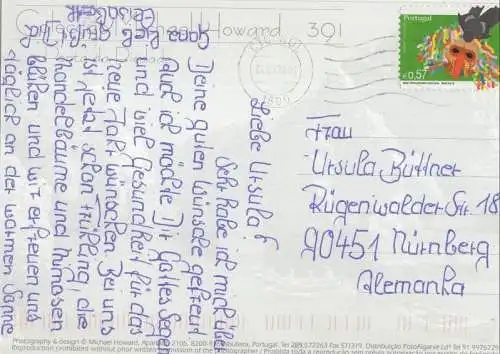 Howard 391
Portugal
€0,57
Liebe Ursula!
Sehr habe ich mich über
Deine guten Wünsche gefreut
Auch ich möchte Dir Gottes Segen
und viel Gesundheit für das
neue Jahr wünschen. Bei uns
ist jetzt schon Frühling, die
Mandelbäume und Mimosen
blühen und wir erfreuen uns
täglich an der warmen Sonne
Ganz lieb grüßt Dich
Frau
Ursula Büttner
Rügenwalder Str. 18
90451 Nürnberg
Alemanha
Photography & design © Michael Howard, Apartado 2106, 8200 Albufeira, Portugal. Tel 289 572263 Fax 571319. Distribuição FotoAlgarve Ldª Tel 91 997622
Reproduction forbidden without prior written permission of the photographer / Proibida toda a reprodução sem